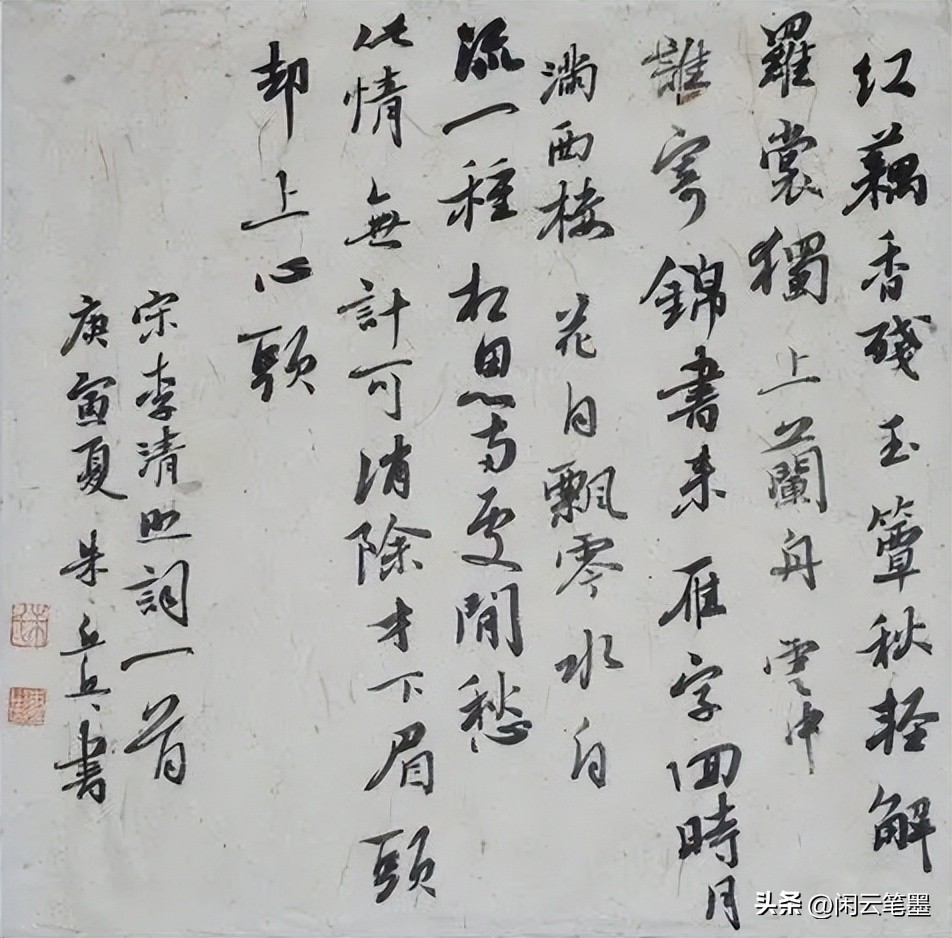 红藕香残玉簟秋轻解
羅裳獨上蘭舟雲中
誰寄錦書来雁字回時月
满西楼花自飄零水自
流一種相思兩處閒愁
此情無計可消除才下眉頭
却上心頭
宋李清照詞一首
庚寅夏朱 書
头条 @闲云笔墨